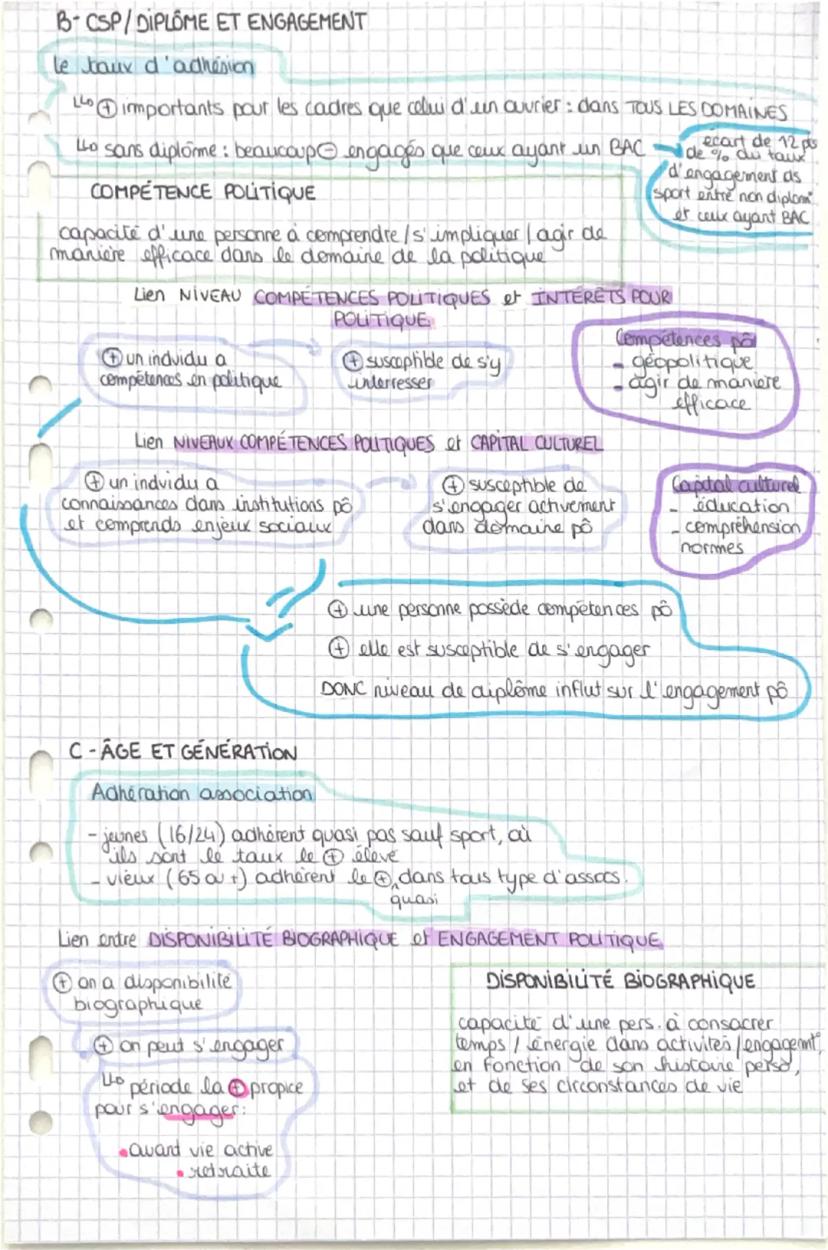 B- CSP/DIPLÔME ET ENGAGEMENT
le taux d'adhésion
↳ ⊕ importants pour les cadres que celui d'un ouvrier : dans TOUS LES DOMAINES
↳ sans diplôme : beaucoup ⊖ engagés que ceux ayant un BAC →
écart de 12 pts
de % du taux
d'engagement ds
sport entre non diplom
et ceux ayant BAC
COMPÉTENCE POLITIQUE
capacité d'une personne à comprendre/s'impliquer/agir de
manière efficace dans le domaine de la politique
Lien NIVEAU COMPÉTENCES POLITIQUES et INTÉRÊTS POUR
POLITIQUE
⊕ un individu a
compétences en politique
⊕ susceptible de s'y
interresser
Compétences pô
- géopolitique
- agir de manière
efficace
Lien NIVEAUX COMPÉTENCES POLITIQUES et CAPITAL CULTUREL
⊕ un individu a
connaissances dans institutions pô
et comprends enjeux sociaux
⊕ susceptible de
s'engager activement
dans domaine pô
Capital culturel
- éducation
- compréhension
normes
⊕ une personne possède compétences pô
⊕ elle est susceptible de s'engager
DONC niveau de diplôme influt sur l'engagement pô
C - ÂGE ET GÉNÉRATION
Adhération association
- jeunes (16/24) adhèrent quasi pas sauf sport, où
ils sont le taux le ⊕ élevé
- vieux (65 a +) adhèrent le ⊕, dans tous type d'assos.
quasi
Lien entre DISPONIBILITÉ BIOGRAPHIQUE et ENGAGEMENT POLITIQUE
⊕ on a disponibilité
biographique
⊕ on peut s'engager
↳ période la ⊕ propice
pour s'engager :
• avant vie active
• retraite
DISPONIBILITÉ BIOGRAPHIQUE
capacité d'une pers. à consacrer
temps / énergie dans activités/engagemt,
en fonction de son histoire perso,
et de ses circonstances de vie